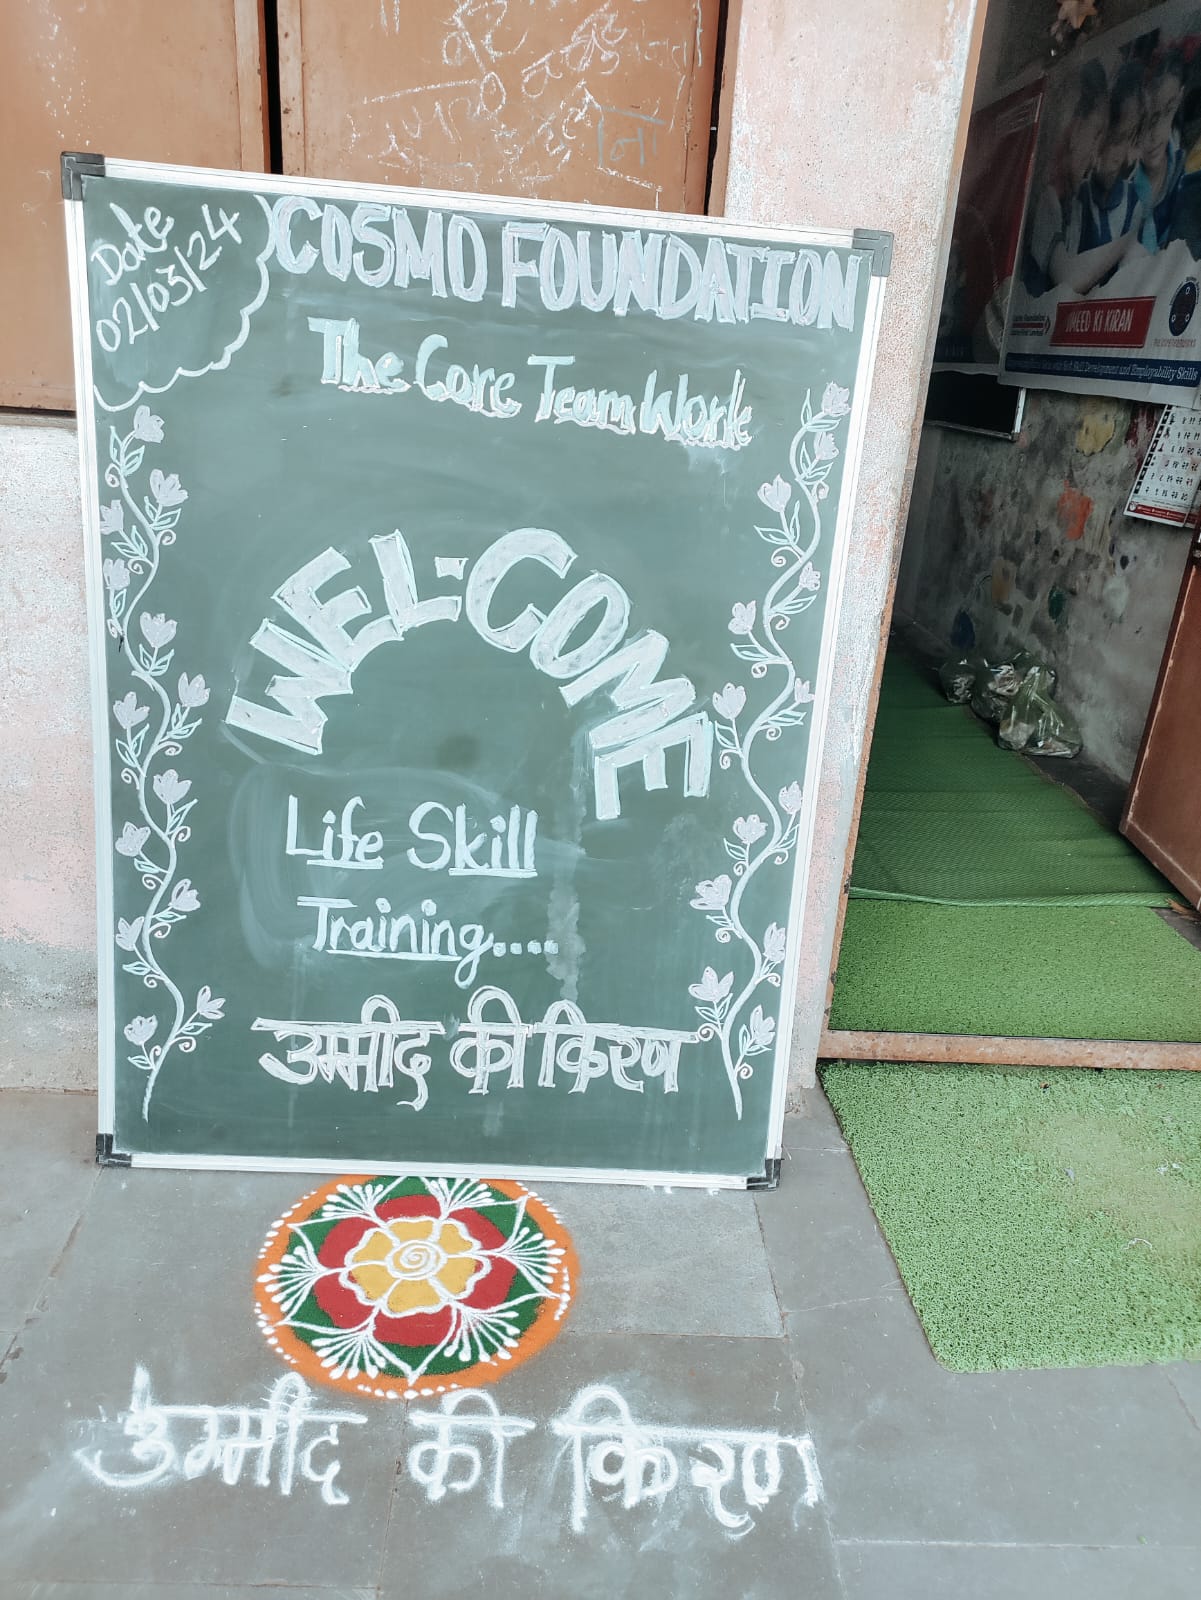 Date
02/03/24
COSMO FOUNDATION
The Core Team Work
WEL-COME
Life Skill
Training....
उम्मीद की किरण
उम्मीद की किरण
UMEED KI KIRAN
Skill Development and Employability Skills